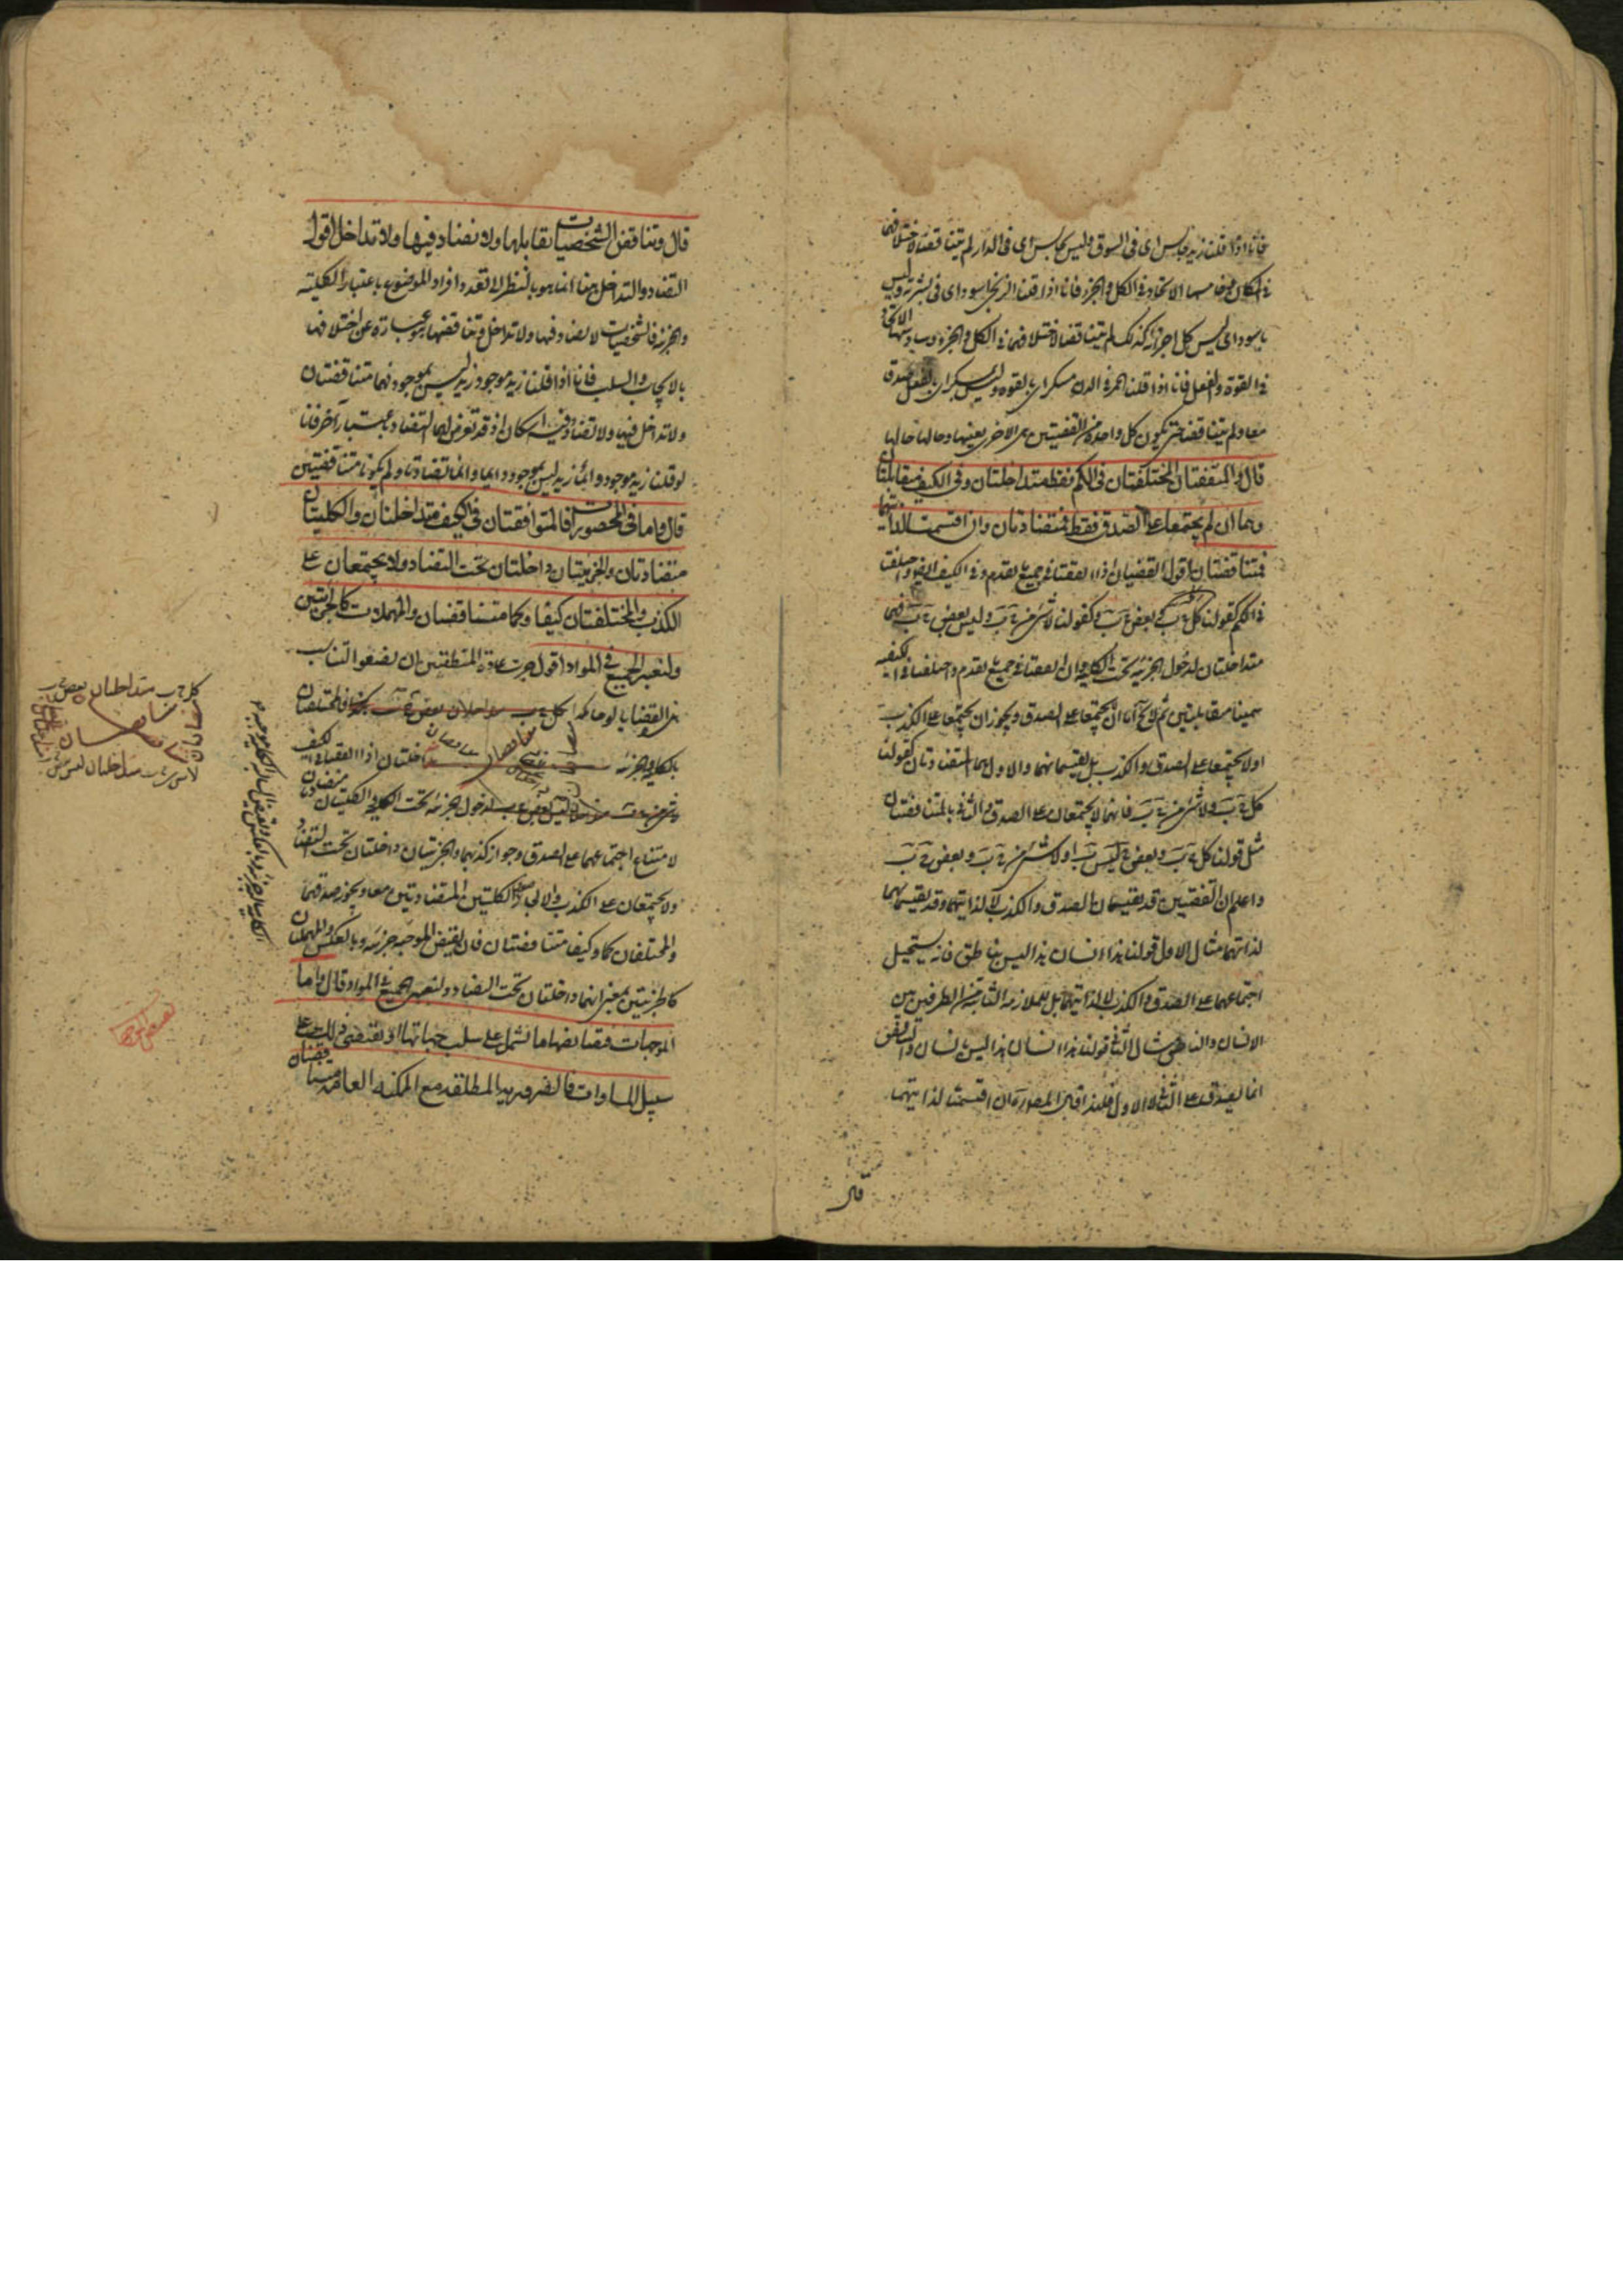 فانا اذا قلنا زيد جالس اى فى السوق وليس بجالس اى فى الدار لم يتناقضا لاختلافهما
فى المكان وخامسها الاتحاد فى الكل والجزء فانا اذا قلنا الزنجى اسود اى فى بشرته وليس
باسود اى ليس كل اجزائه كذلك لم يتناقضا لاختلافهما فى الكل والجزء وسادسها الاتحاد
فى القوة والفعل فانا اذا قلنا الخمر فى الدن مسكر اى بالقوة وليس بمسكر اى بالفعل صدق
معا ولم يتناقضا حتى يكون كل واحدة من القضيتين هى الاخرى بعينها وحالها حالها
قال والمتفقتان المختلفتان فى الكم فقط متداخلتان وفى الكيف متقابلتان
وهما ان لم يجتمعا على الصدق فقط فمتضادتان وان اقتسمتا لذاتيهما
فمتناقضتان اقول القضيتان اذا اتفقتا فى جميع ما تقدم وفى الكيف ايضا واختلفتا
فى الكم كقولنا كل ج ب وبعض ج ب وكقولنا لا شئ من ج ب وليس بعض ج ب فهما
متداخلتان لدخول الجزئية تحت الكلية وان اتفقتا فى جميع ما تقدم واختلفتا فى الكيفية
سميتا متقابلتين ثم لا يخ اما ان يجتمعا على الصدق ويجوز ان يجتمعا على الكذب
او لا يجتمعا على الصدق والكذب بل يقتسمانهما والاول هما المتضادتان كقولنا
كل ج ب ولا شئ من ج ب فانهما لا يجتمعان على الصدق والثانى المتناقضتان
مثل قولنا كل ج ب وبعض ج ليس ب او لا شئ من ج ب وبعض ج ب
واعلم ان القضيتين قد يقتسمان الصدق والكذب لا لذاتيهما وقد يقتسمانهما
لذاتهما مثال الاول قولنا هذا انسان هذا ليس بناطق فانه يستحيل
اجتماعهما على الصدق والكذب لا لذاتيهما بل للملازمة الثابتة من الطرفين بين
الانسان والناطق مثال الثانى قولنا هذا انسان هذا ليس بانسان والتناقض
انما يصدق على الثانى لا الاول فلهذا قال المص ره وان اقتسمتا لذاتيهما
قال
قال وتناقض الشخصيات تقابلها ولا تضاد فيها ولا تداخل اقول
التضاد والتداخل هنا انما هو بالنظر الى تعدد افراد الموضوع باعتبار الكلية
والجزئية فالشخصيات لا تضاد فيها ولا تداخل وتناقضها عبارة عن اختلافهما
بالايجاب والسلب فانا اذا قلنا زيد موجود زيد ليس بموجود فهما متناقضتان
ولا تداخل فيها ولا تضاد وفيه اشكال اذ قد تعرض لها التضاد باعتبار آخر فانا
لو قلنا زيد موجود دائما زيد ليس بموجود دائما وانما تضادتا ولم يكونا متناقضتين
قال واما فى المحصورات فالمتوافقتان فى الكيف متداخلتان والكليتان
متضادتان والجزئيتان داخلتان تحت التضاد ولا يجتمعان على
الكذب والمختلفتان كيفا وكما متناقضتان والمهملات كالجزئيتين
ولتعتبر الجميع فى المواد اقول جرت عادة المنطقيين ان يضعوا التناسب
بين القضايا لوحا هكذا كل ج ب متداخلان بعض ج ب فالمختلفتان
بالكلية والجزئية متداخلتان اذا اتفقتا فى الكيف
لدخول الجزئية تحت الكلية الكليتان متضادتان
لامتناع اجتماعهما على الصدق وجواز كذبهما والجزئيتان داخلتان تحت التضاد
ولا يجتمعان على الكذب والا لصدق الكليتين المتضادتين معا ويجوز صدقهما
والمختلفتان كما وكيفا متناقضتان فان نقيض الموجبة جزئية وبالعكس والمهملتان
كالجزئيتين بمعنى انهما داخلتان تحت التضاد ولتعتبر الجميع فى المواد قال واما
الموجهات فنقايضها ما تشتمل على سلب جهاتها او تقتضى ذلك على
سبيل المساوات فالضرورية المطلقة مع الممكنة العامة متناقضتان
كل ج ب متداخلتان بعض ج ب
متناقضتان
لا شئ من ج ب متداخلتان ليس بعض ج ب